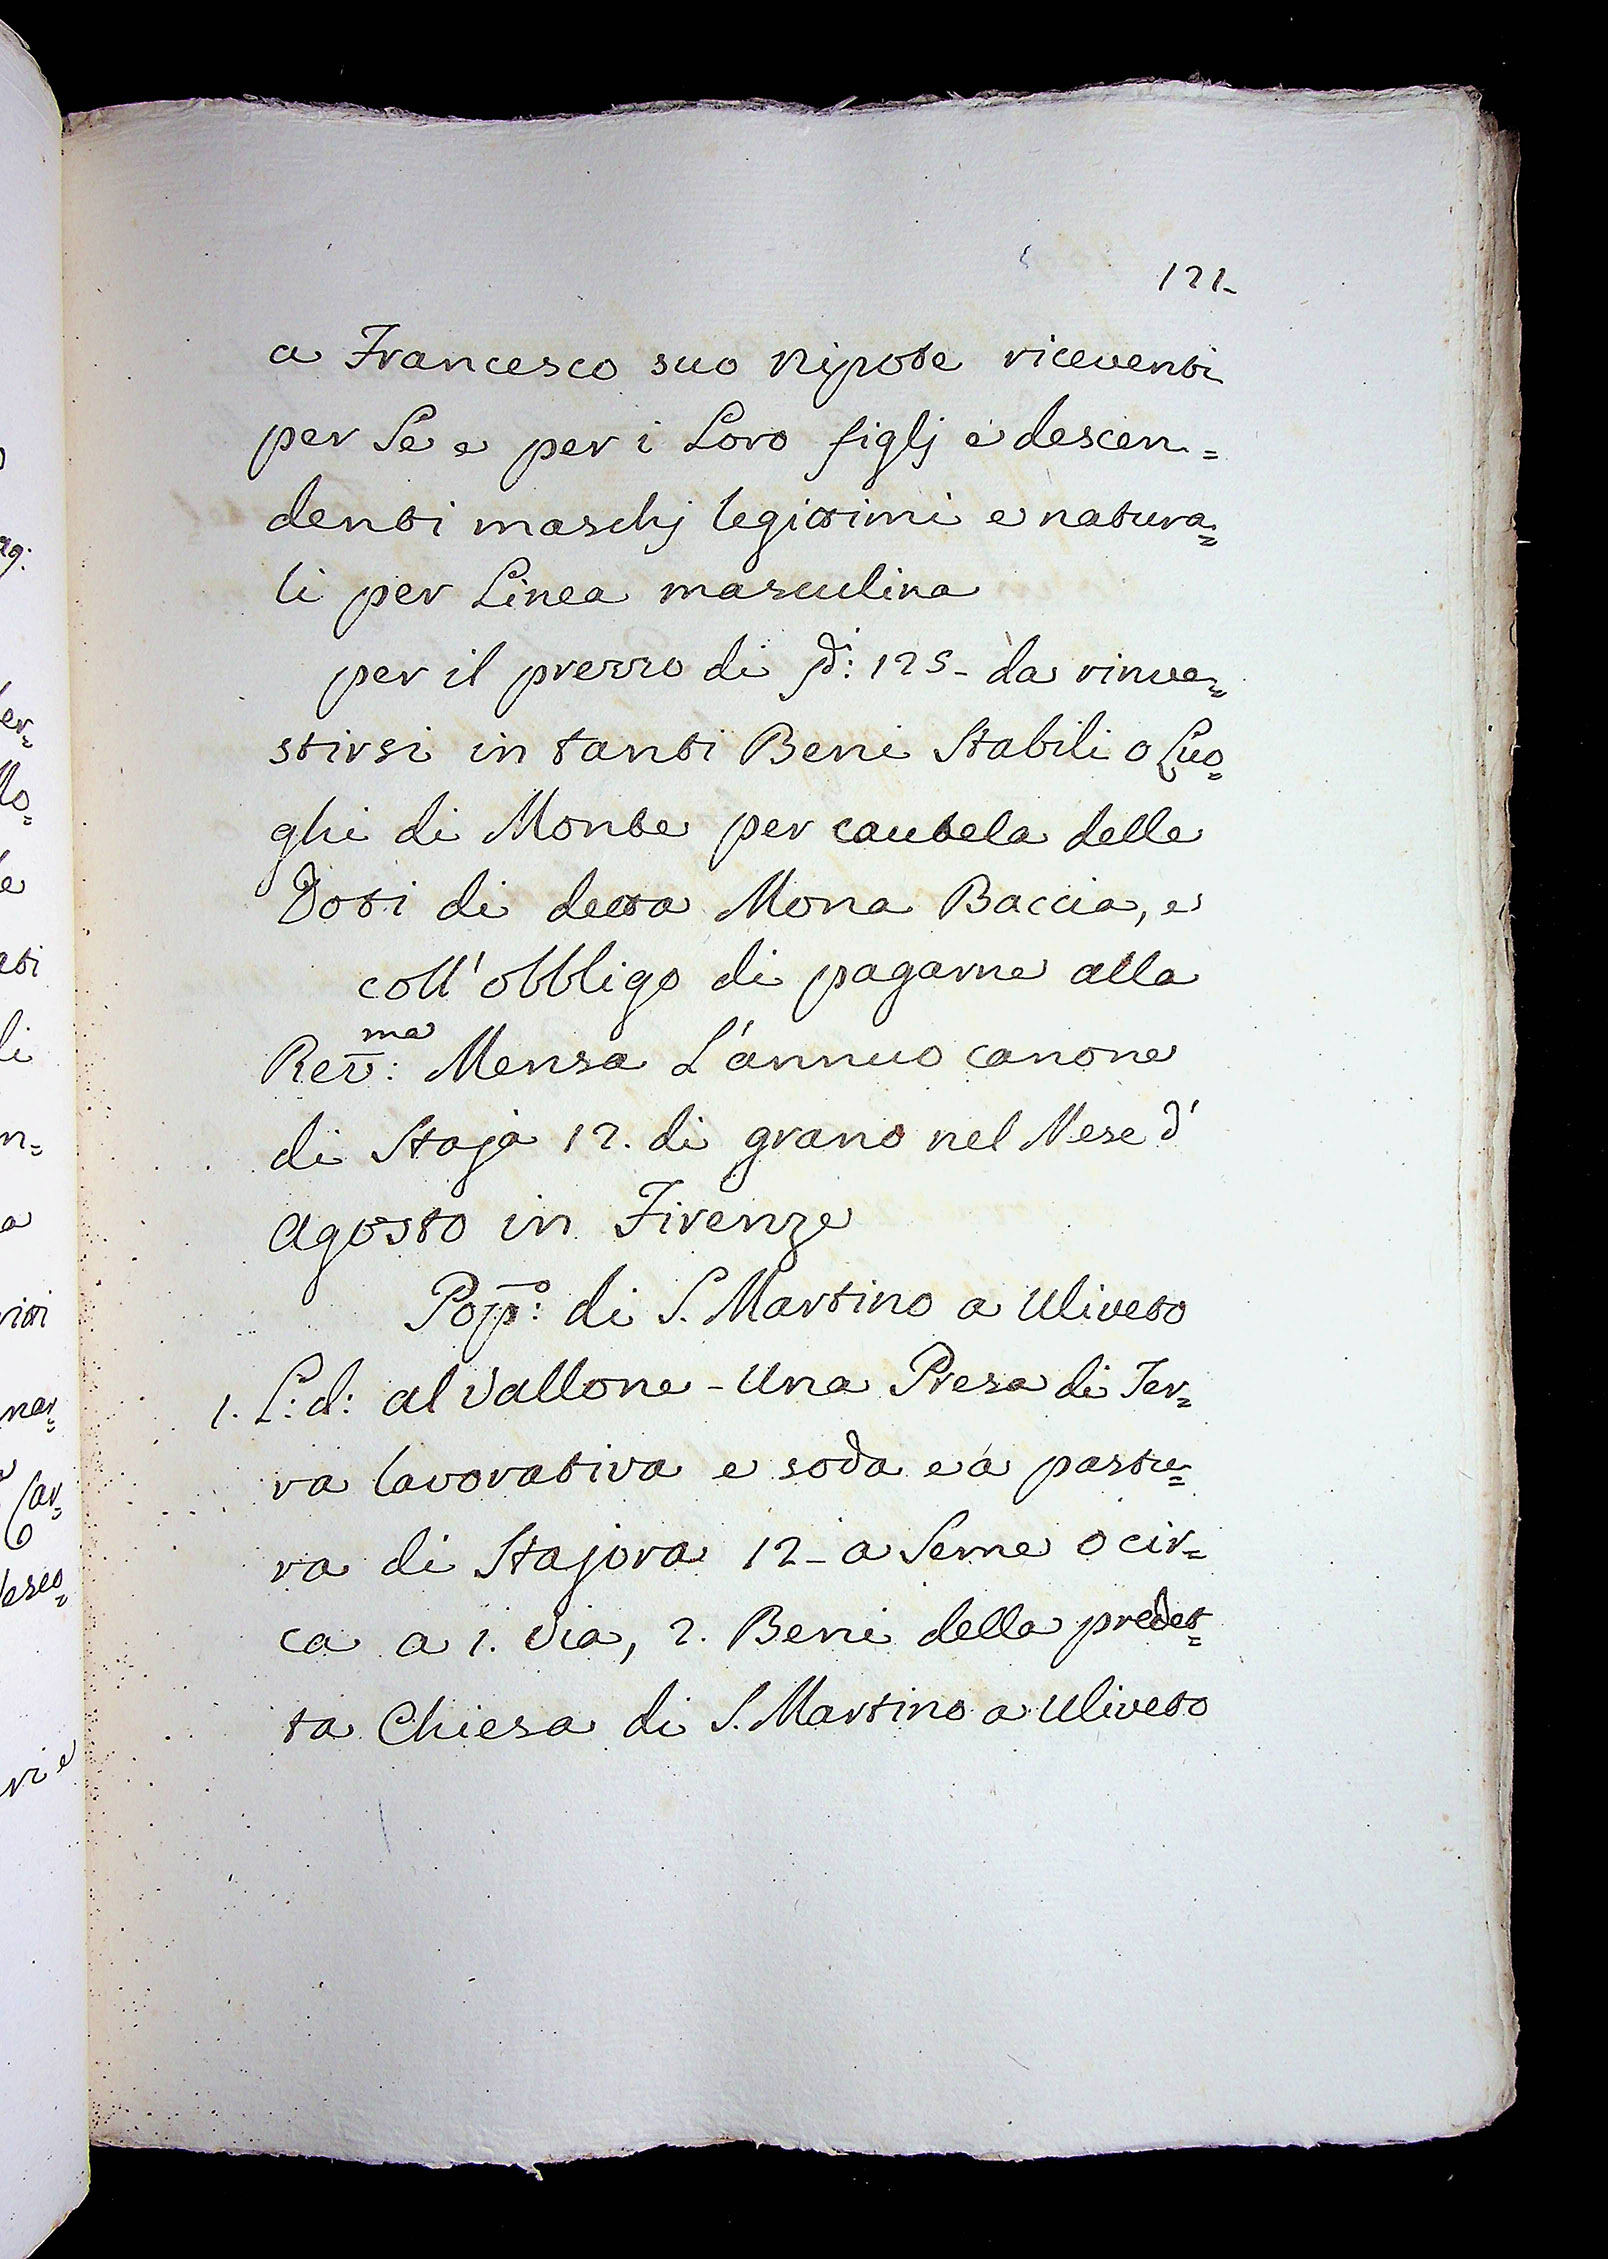 121-
a Francesco suo Nipote riceventi
per Se e per i Loro figlj e descen=
denti maschj legittimi e natura=
li per Linea masculina
per il prezzo di 125- da rinve=
stirsi in tanti Beni Stabili o Luo=
ghi di Monte per cautela delle
Doti di detta Mona Baccia, e
coll' obbligo di pagarne alla
Rev:ma Mensa L'annuo canone
di Staja 12. di grano nel Mese d'
Agosto in Firenze
Pop:o di S. Martino a Uliveto
1. L: d: al Vallone - Una Presa di Ter=
ra lavorativa e soda e a pastu=
ra di Stajora 12- a Seme o cir=
ca a 1. Via, 2. Beni della predet=
ta Chiesa di S. Martino a Uliveto